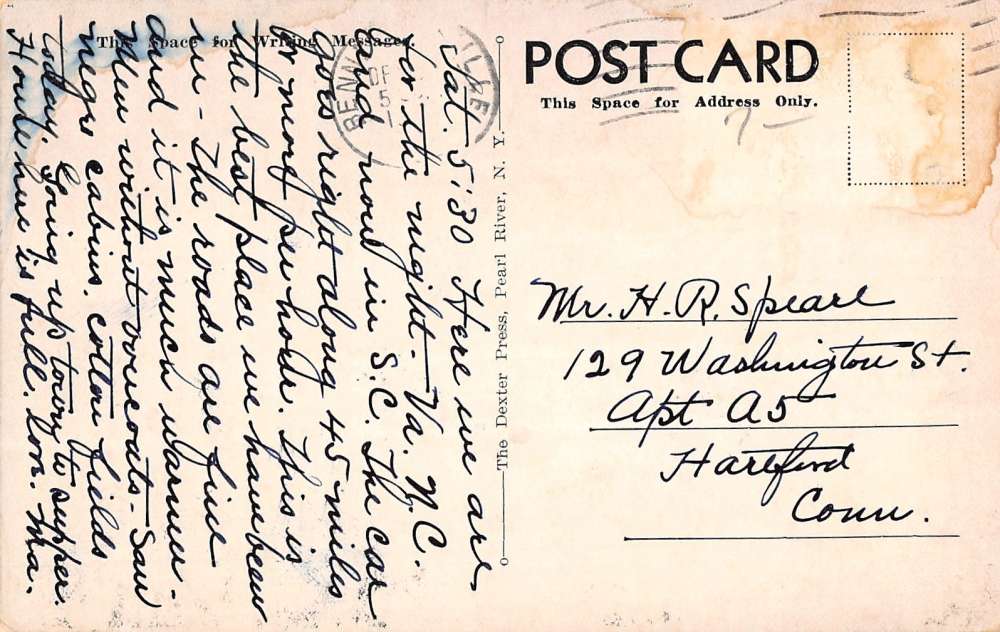 This Space for Writing Messages.
POST CARD
This Space for Address Only.
7-
BENN
The Dexter Press, Pearl River, N. Y.
Sat. 5:30 Here we are
for the night - Va. N.C.
and now in S.C. The car
goes right along 45 miles
or more per hour. This is
the best place we have been
in - The roads are fine
and it is much warmer -
Men without overcoats - Saw
negro cabins, cotton fields
today. Going up town to supper.
House here is full. Love. Ma.
Mr. H. R. Spearl
129 Washington St.
Apt A5
Hartford
Conn.